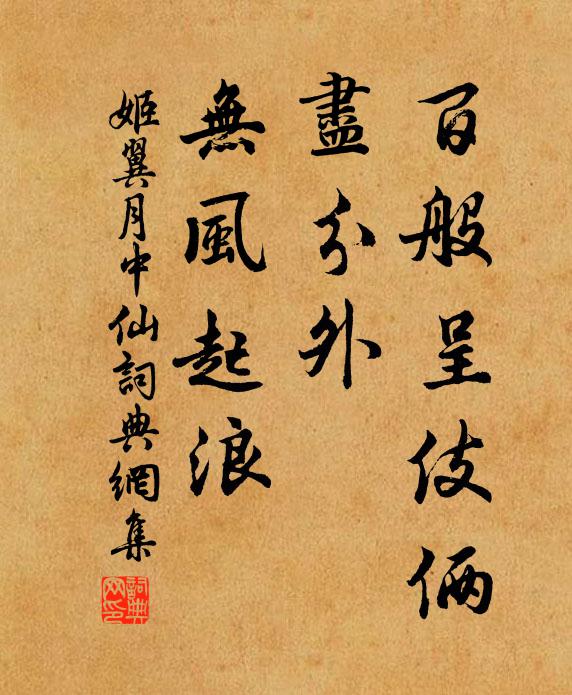 百般呈伎倆
盡分外
無風起浪
姬翼月中仙詞典網集
詞典网印